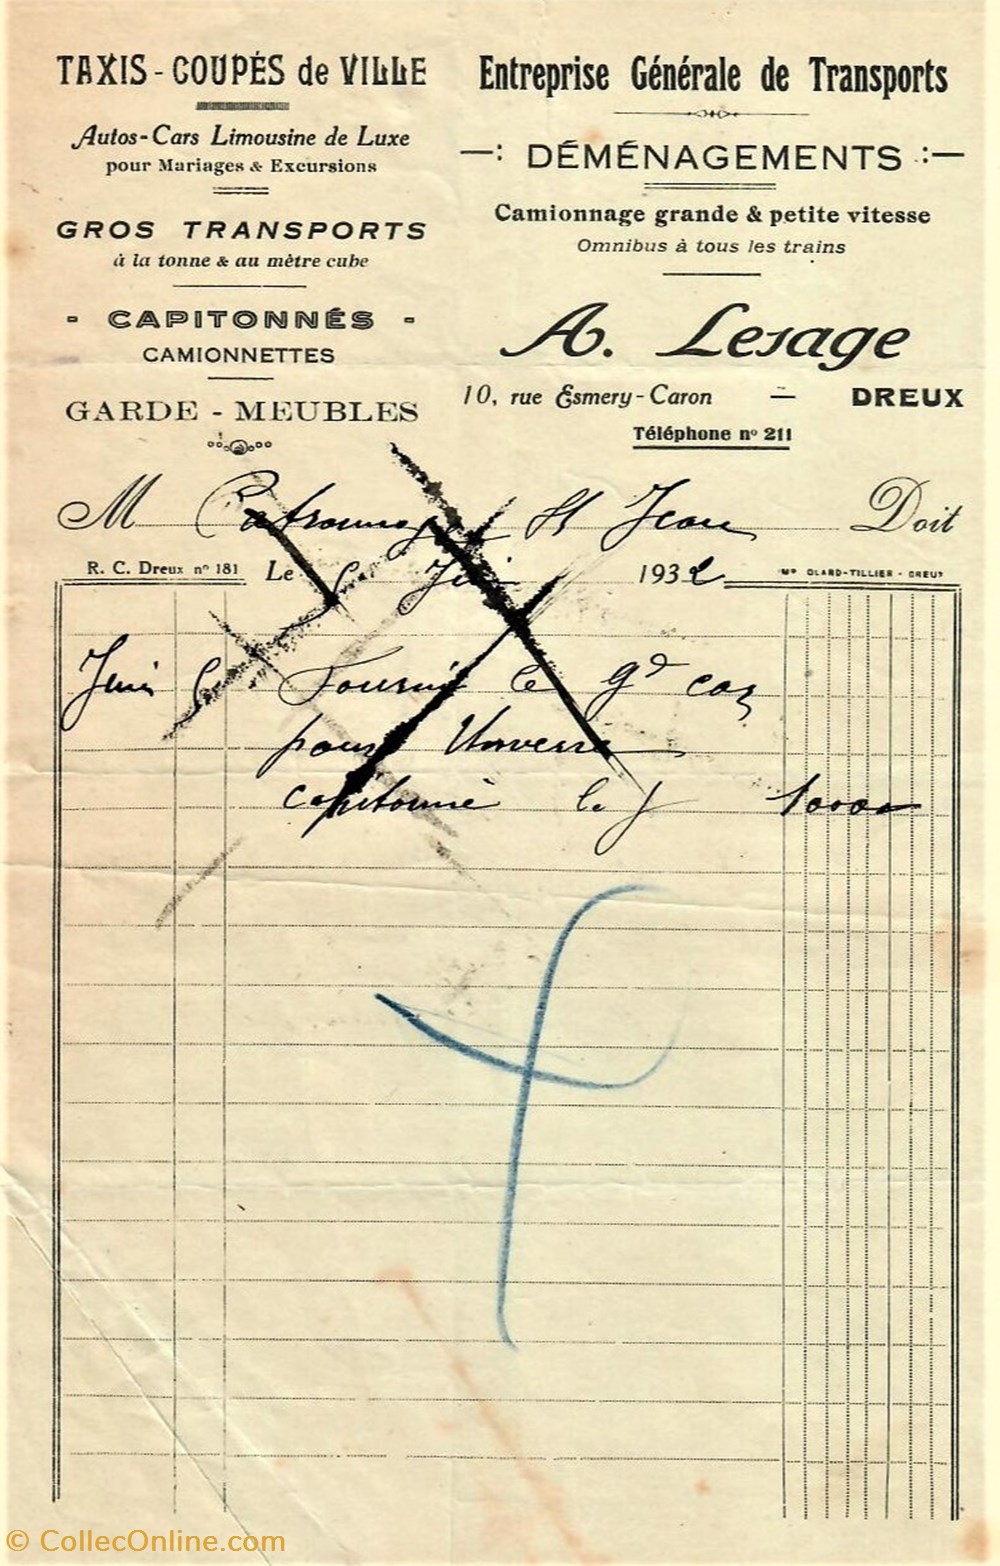 TAXIS - COUPÉS de VILLE
Autos-Cars Limousine de Luxe
pour Mariages & Excursions
GROS TRANSPORTS
à la tonne & au mètre cube
- CAPITONNÉS -
CAMIONNETTES
GARDE - MEUBLES
Entreprise Générale de Transports
DÉMÉNAGEMENTS
Camionnage grande & petite vitesse
Omnibus à tous les trains
A. Lesage
10, rue Esmery-Caron — DREUX
Téléphone nº 211
M Patronage St Jean Doit
R. C. Dreux nº 181 Le 5 Juin 1932
IMP OLARD-TILLIER - DREUX
Juin 5 Fourni le gd car
pour
capitonné le
© CollecOnline.com